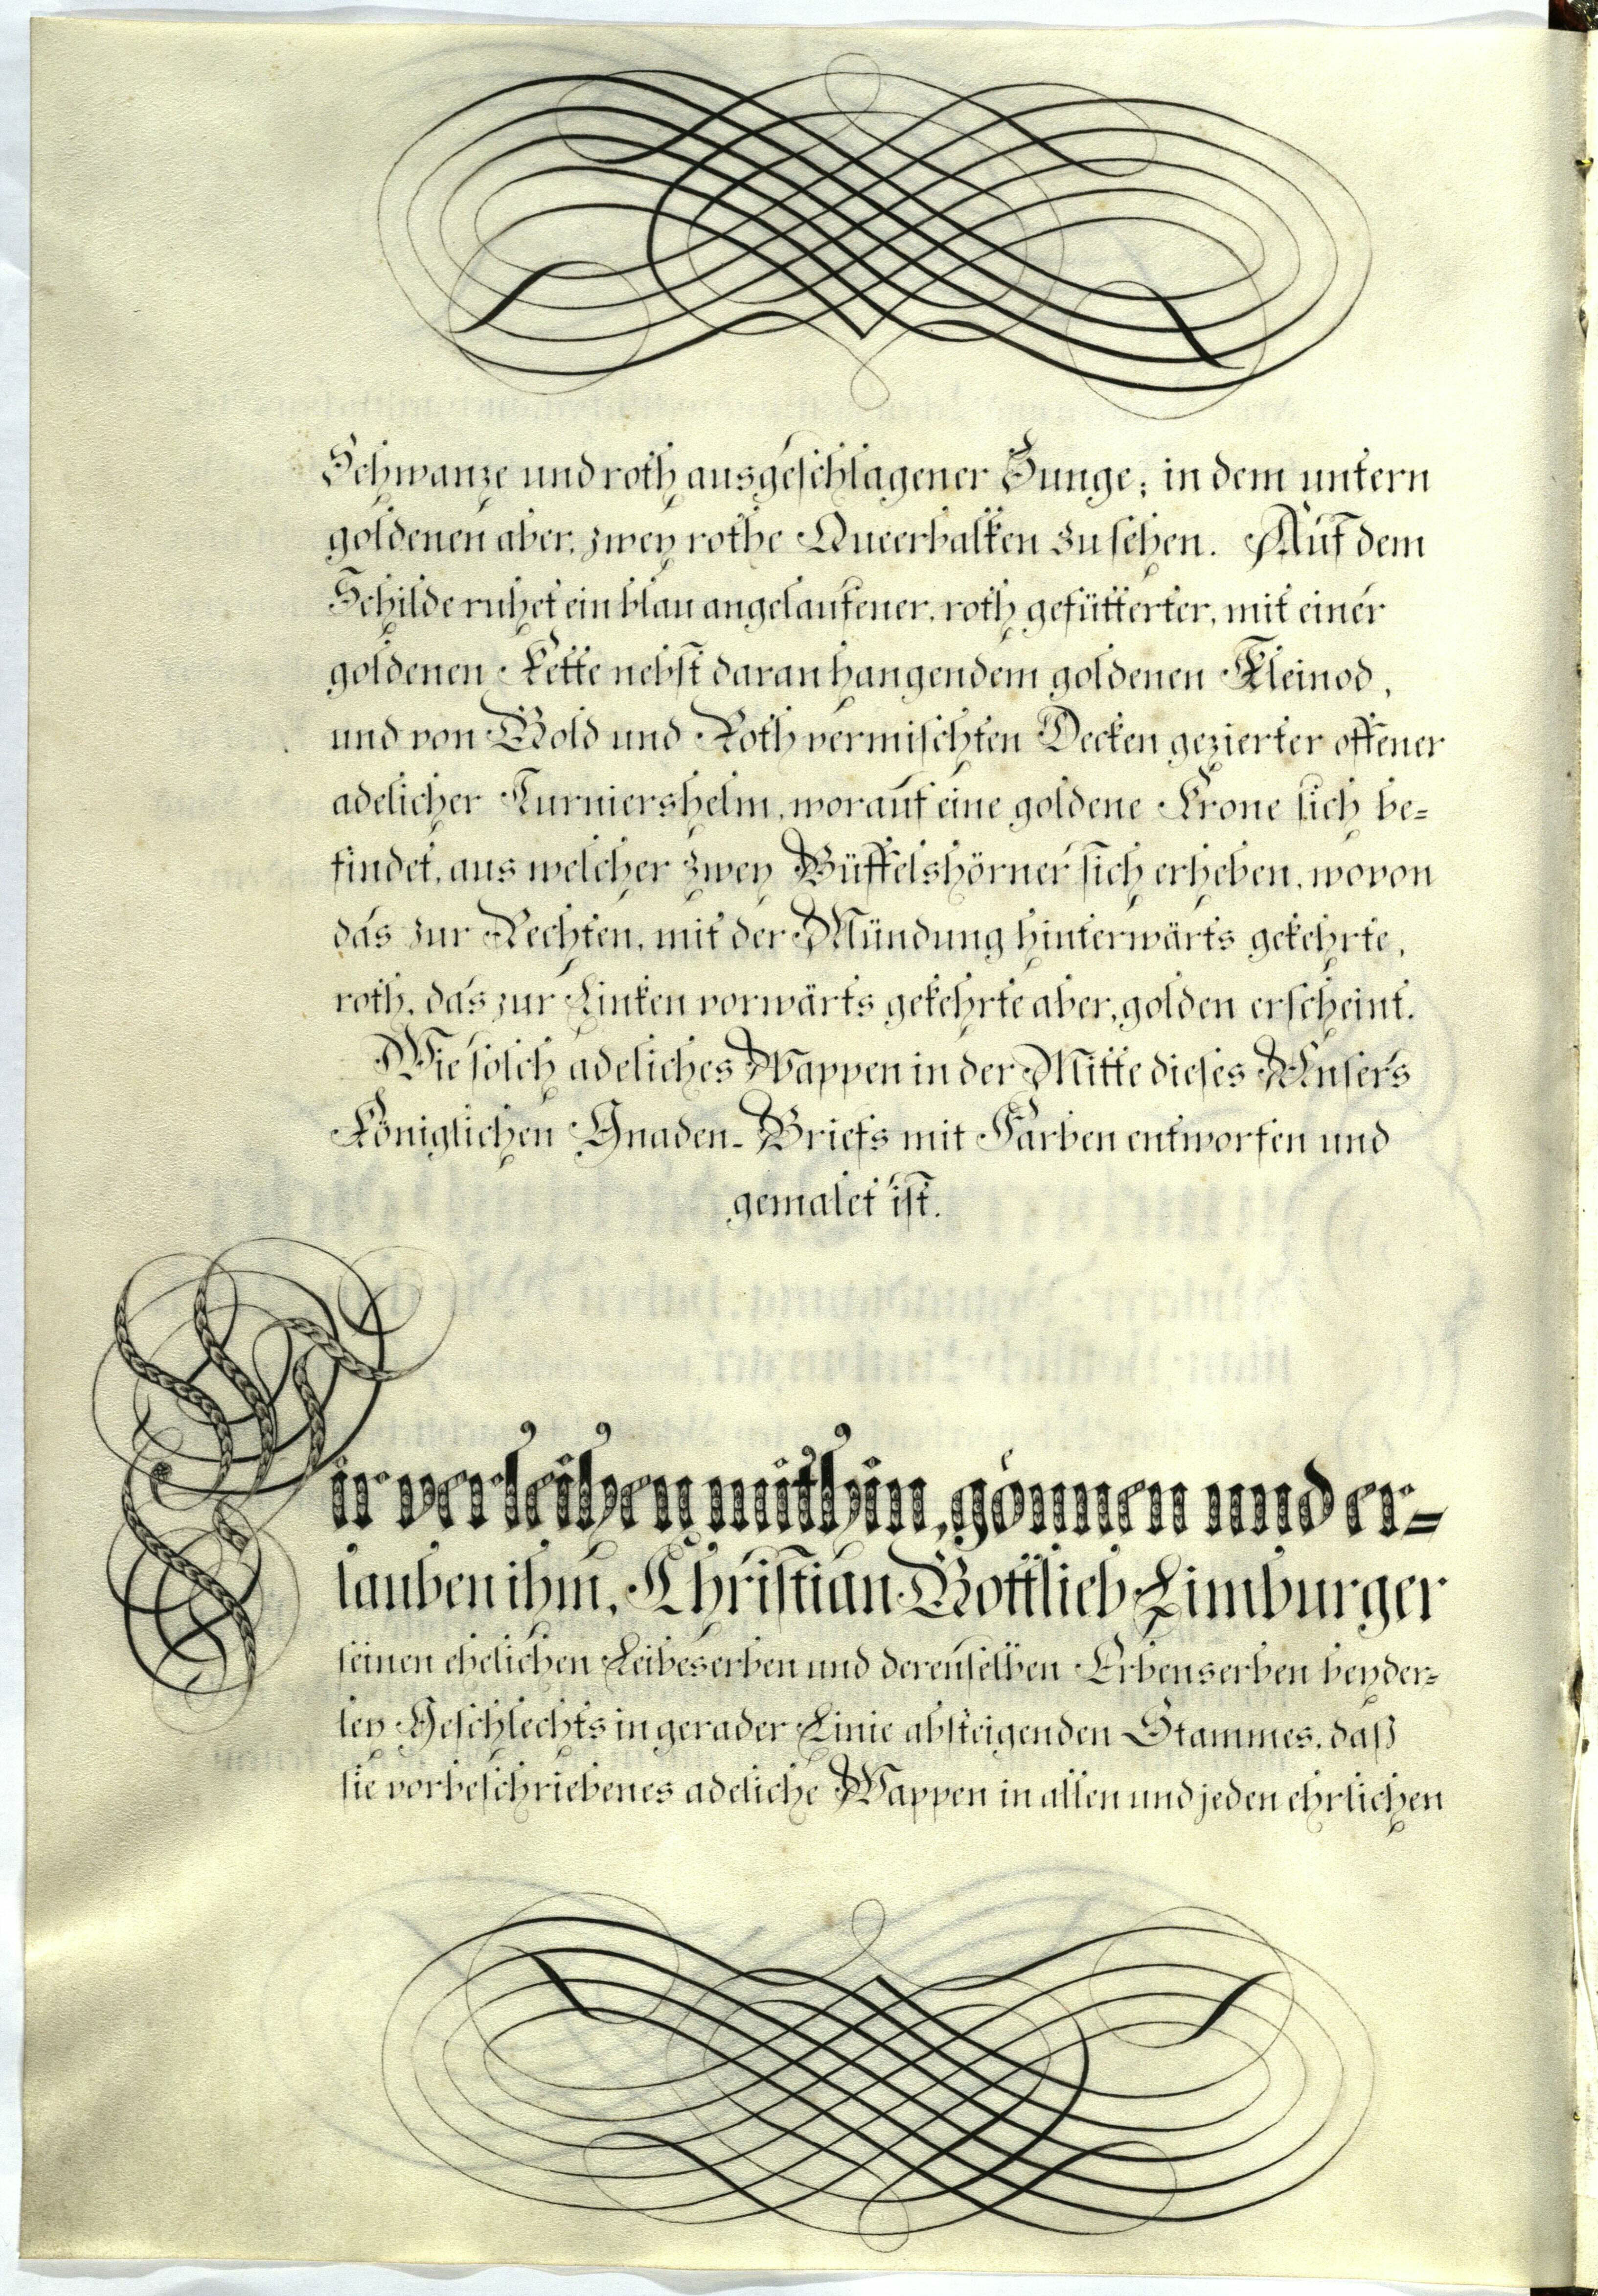 Schwanze und roth ausgeschlagener Zunge; in dem untern
goldenen aber, zwey rothe Queerbalken zu sehen. Auf dem
Schilde ruhet ein blau angelaufener, roth gefütterter, mit einer
goldenen Kette nebst daran hangendem goldenen Kleinod,
und von Gold und Roth vermischten Decken gezierter offener
adelicher Turniershelm, worauf eine goldene Krone sich be=
findet, aus welcher zwey Büffelshörner sich erheben, wovon
das zur Rechten, mit der Mündung hinterwärts gekehrte,
roth, das zur Linken vorwärts gekehrte aber, golden erscheint.
Wie solch adeliches Wappen in der Mitte dieses Unsers
Königlichen Gnaden-Briefs mit Farben entworfen und
gemalet ist.
Wir verleihen mithin, gönnen und er=
lauben ihm, Christian Gottlieb Limburger
seinen ehelichen Leibeserben und derenselben Erbenserben beyder=
ley Geschlechts in gerader Linie absteigenden Stammes, daß
sie vorbeschriebenes adeliche Wappen in allen und jeden ehrlichen